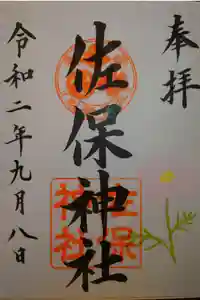 奉拝
佐保神社
令和二年九月八日
佐保
神社